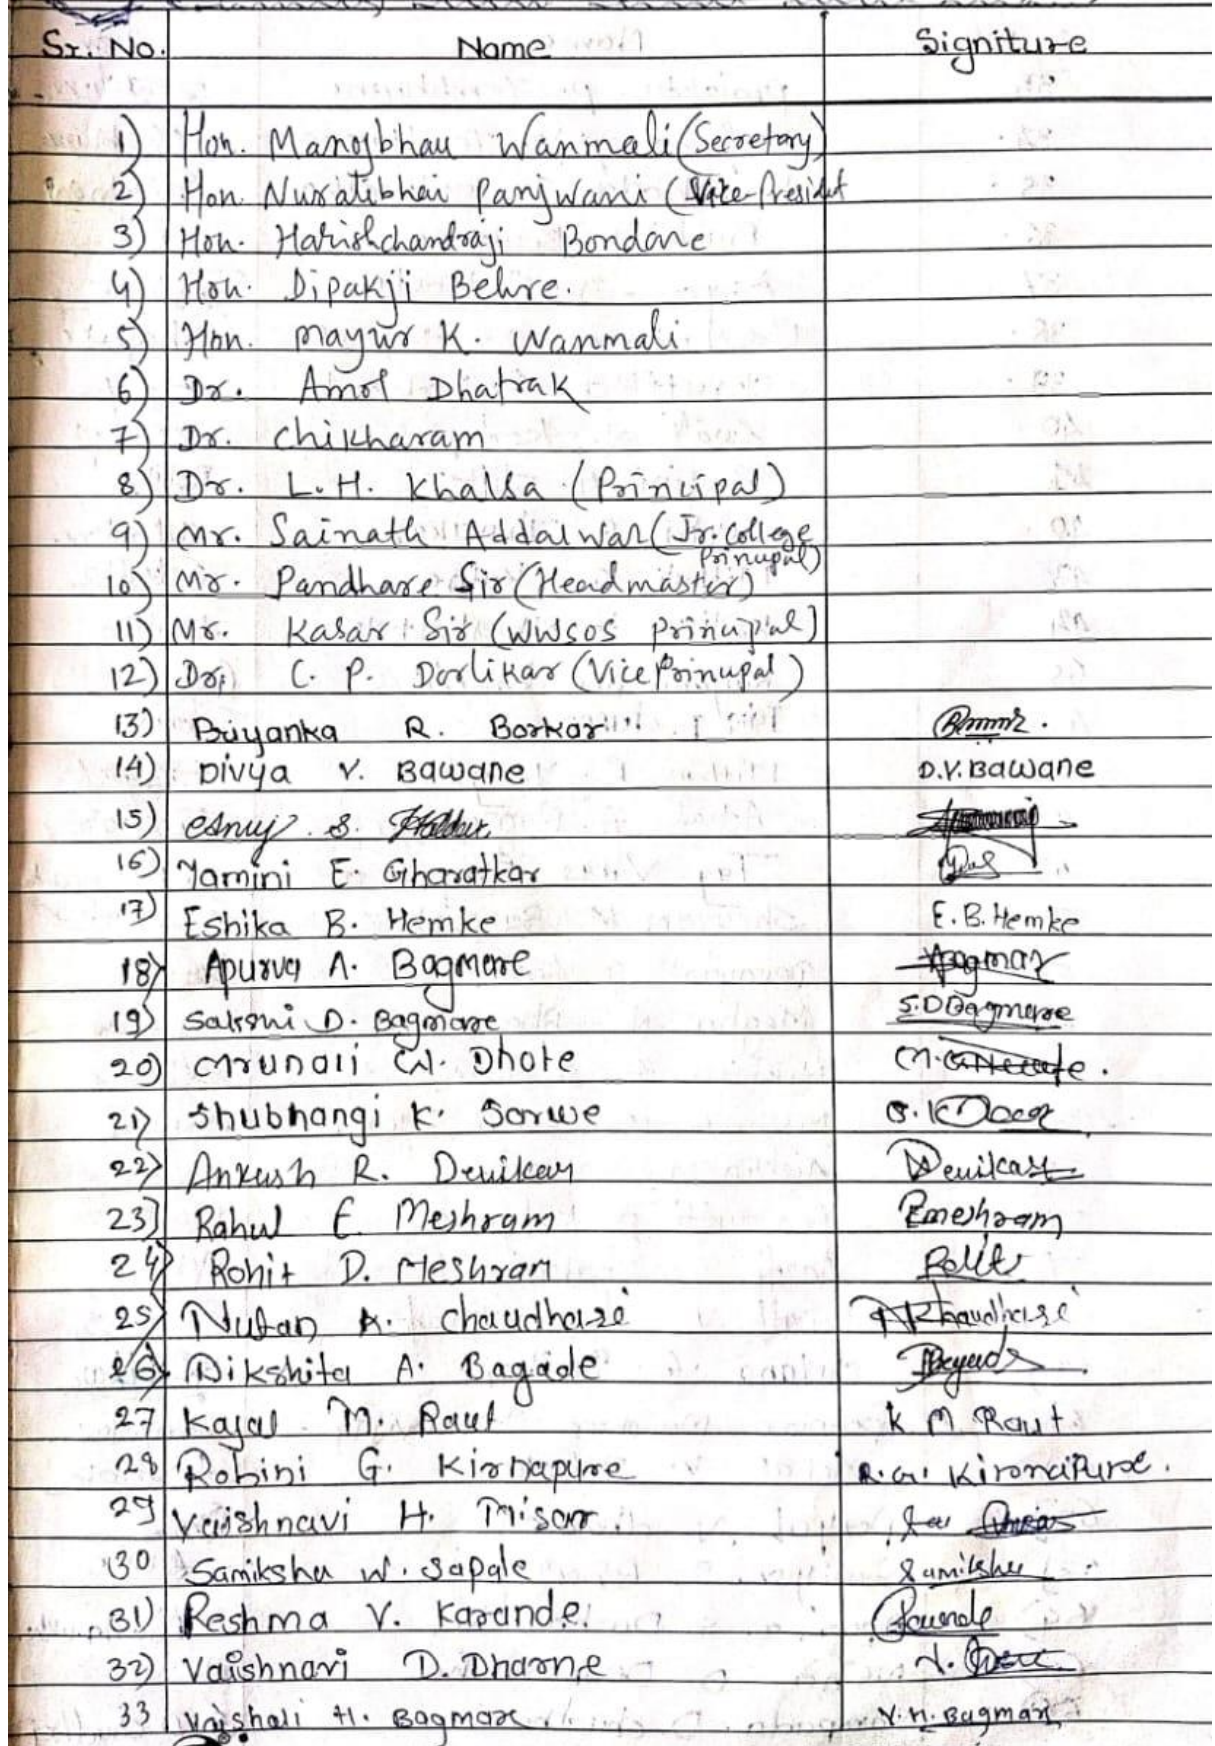 Sr. No. Name Signiture
1) Hon. Manojbhau Wanmali (Secretary)
2) Hon. Nuratibhai Panjwani (Vice-President
3) Hon. Harishchandraji Bondare
4) Hon. Dipakji Behre.
5) Hon. Mayur K. Wanmali
6) Dr. Amol Dhatrak
7) Dr. Chikharam
8) Dr. L.H. Khalsa (Principal)
9) Mr. Sainath Addalwar (Jr. College
Prinupal)
10) Mr. Pandhare Sir (Headmaster)
11) Mr. Kasar Sir (WWSOS Principal)
12) Dr. C. P. Dorlikar (Vice Prinupal)
13) Priyanka R. Borkar
14) Divya V. Bawane D.V. Bawane
15) S. Haldar
16) Yamini E. Gharatkar
17) Eshika B. Hemke E. B. Hemke
18) Apurva A. Bagmare
19) Sakshi D. Bagmare S.D Bagmare
20) Mrunali W. Dhote
21) Shubhangi K. Sarwe
22) Ankush R. Devikar Devikar
23) Rahul E. Meshram Rmeshram
24) Rohit D. Meshram
25) Nutan K. Chaudhari NKChaudhari
26) Dikshita A. Bagade
27 Kajal M. Raut K M Raut
28 Rohini G. Kirnapure R.G. Kirnapure.
29 Vaishnavi H. Misar
30 Samiksha W. Sapale Samiksha
31) Reshma V. Karande
32) Vaishnavi D. Dharne
33 Vaishali H. Bagmare V.H. Bagmare